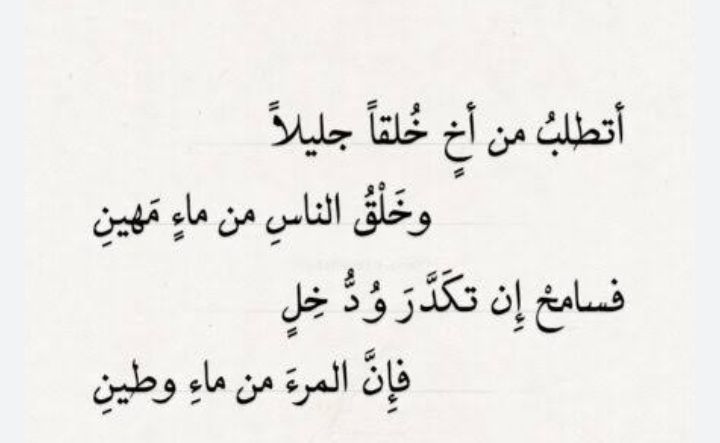 أتطلبُ من أخٍ خُلقاً جليلاً
وخَلْقُ الناسِ من ماءٍ مَهينِ
فسامحْ إِن تكَدَّرَ وُدُّ خِلٍ
فإِنَّ المرءَ من ماءِ وطينِ